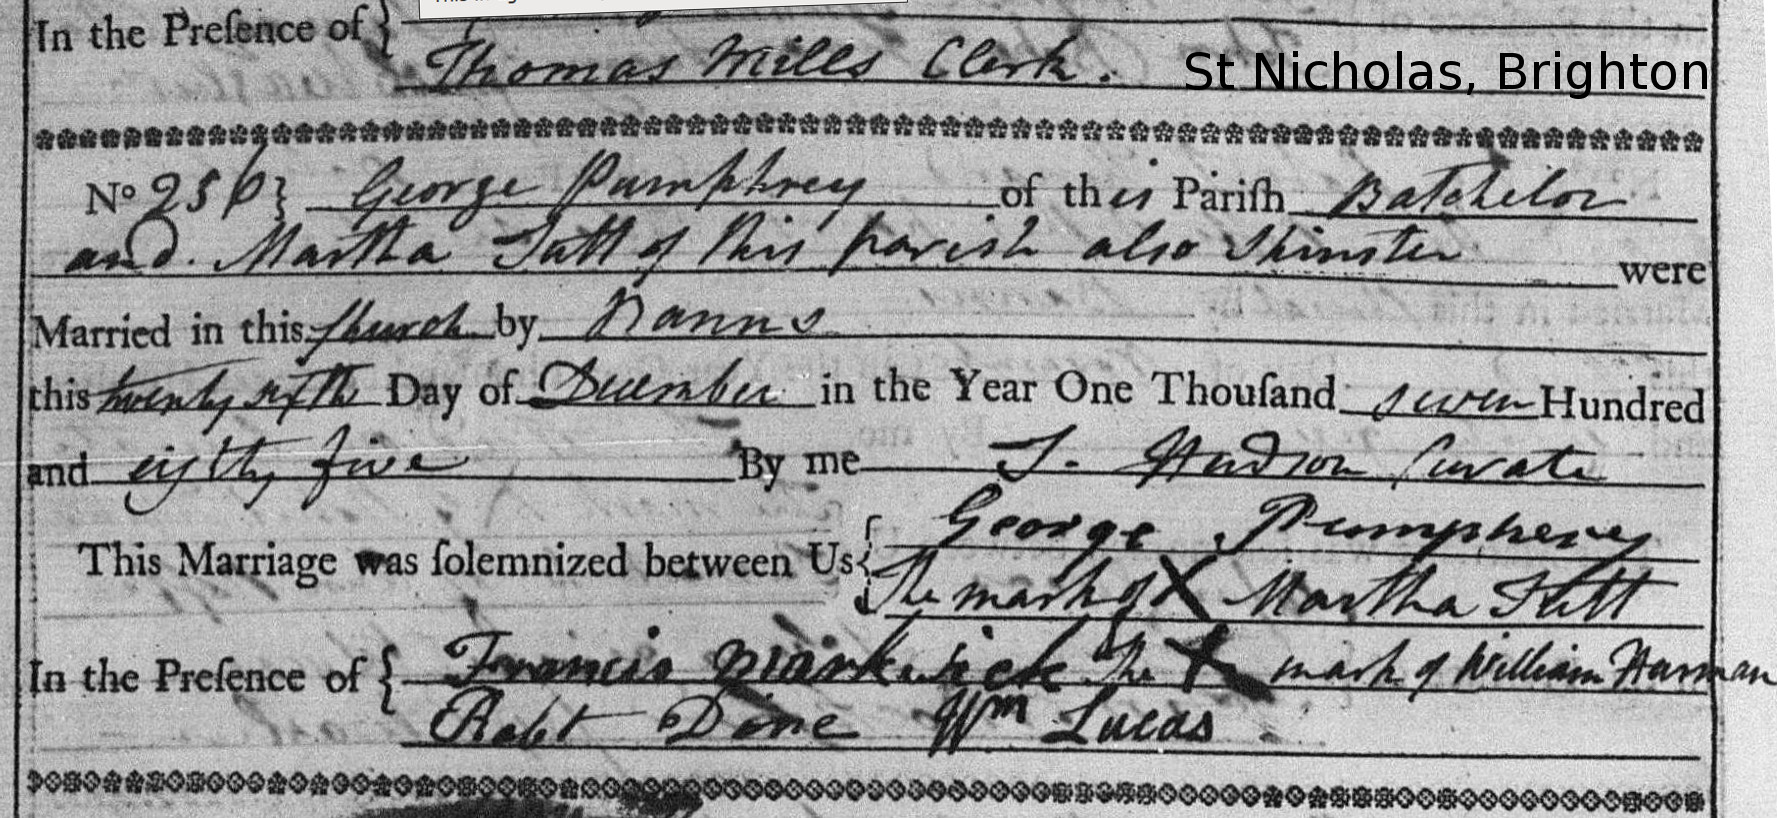 In the Preſence of { Thomas Mills Clerk.
St Nicholas, Brighton
No 256} George Pumphrey of this Pariſh Batchelor
and. Martha Tutt of this parish also Spinster were
Married in this church by Banns
this twenty sixth Day of December in the Year One Thouſand seven Hundred
and eighty five By me J. Hudson Curate
This Marriage was ſolemnized between Us { George Pumpherey
The mark of X Martha Tutt
In the Preſence of { Francis Markwick The X mark of William Harman
Robt Dine Wm Lucas